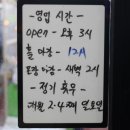 -영업 시간-
open - 오후 3시
홀 마감 - 12A
포장 마감 - 새벽 2시
- 정기 휴무 -
매월 2·4째 일요일